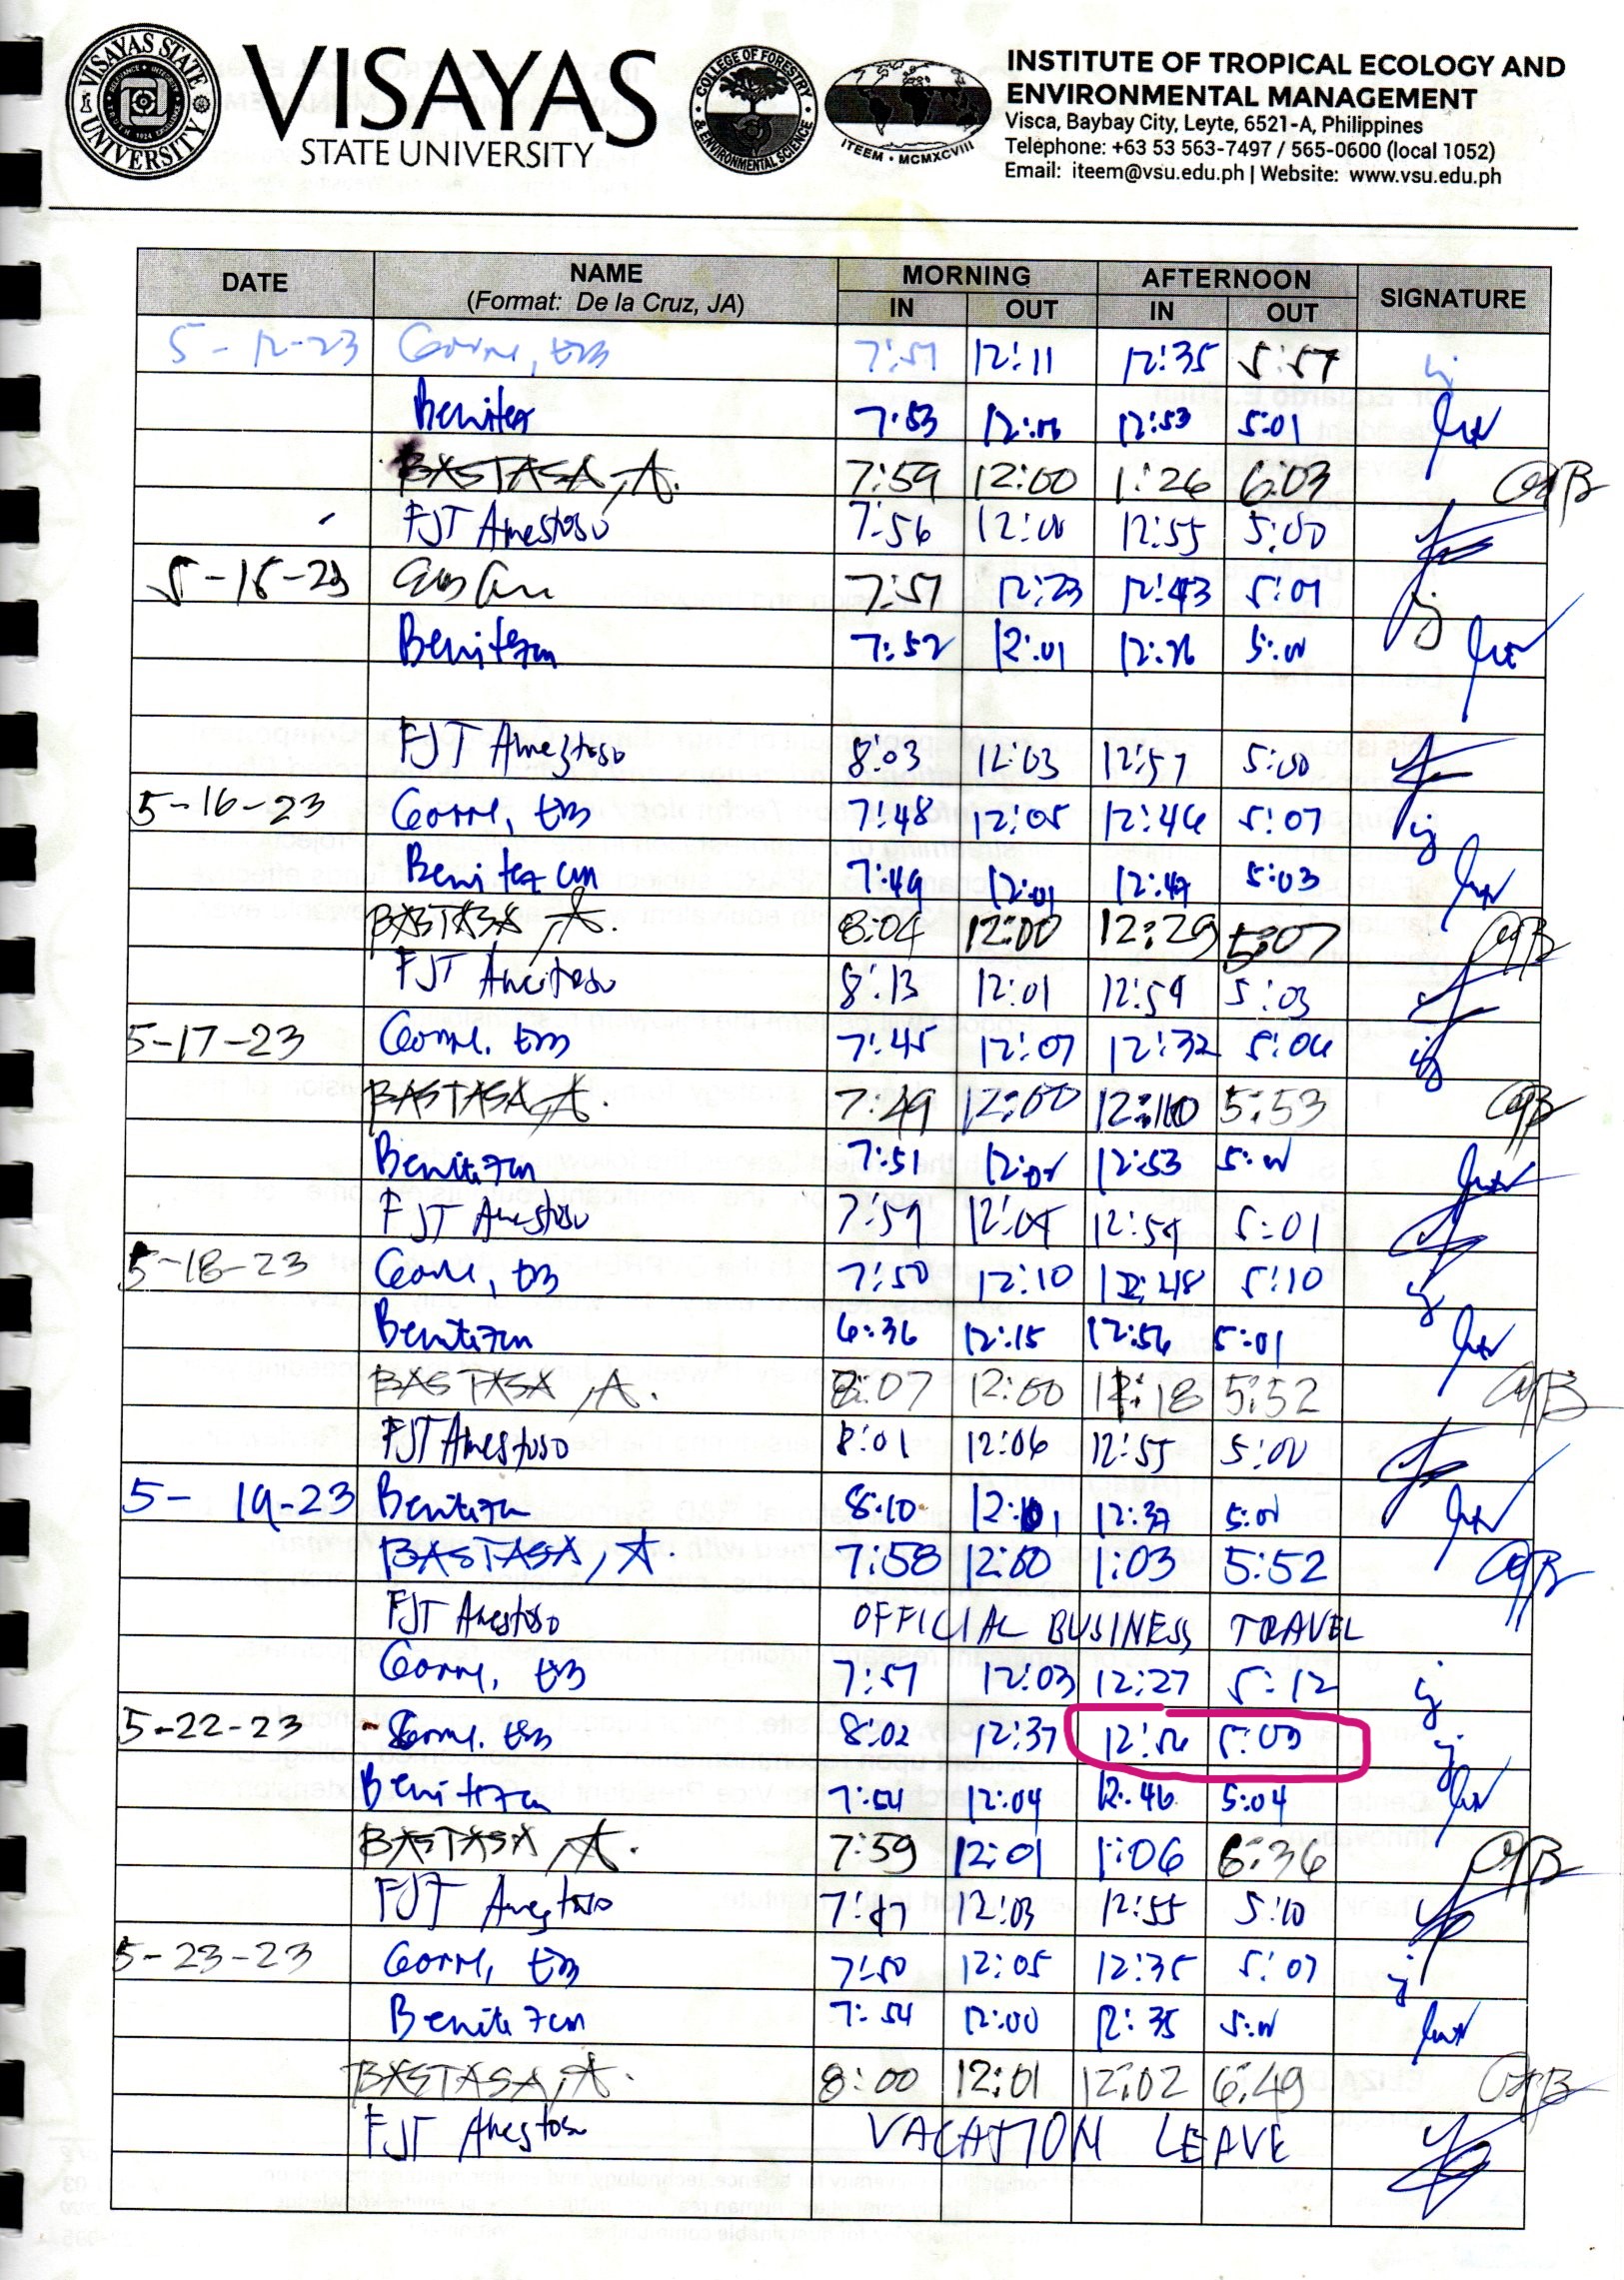 VISAYAS
STATE UNIVERSITY
VISAYAS STATE UNIVERSITY
COLLEGE OF FORESTRY & ENVIRONMENTAL SCIENCE
ITEEM • MCMXCVIII
INSTITUTE OF TROPICAL ECOLOGY AND
ENVIRONMENTAL MANAGEMENT
Visca, Baybay City, Leyte, 6521-A, Philippines
Telephone: +63 53 563-7497 / 565-0600 (local 1052)
Email: iteem@vsu.edu.ph | Website: www.vsu.edu.ph
DATE NAME MORNING AFTERNOON SIGNATURE
(Format: De la Cruz, JA) IN OUT IN OUT
5-12-23 7:51 12:11 12:35 5:57
Benitez 7:53 12:53 5:01
BASTASA, A. 7:59 12:00 1:26 6:03
FJT Anestoso 7:56 12:00 12:55 5:00
5-15-23 7:51 12:23 12:43 5:01
Benitez 7:52 12:01 5:00
FJT Anestoso 8:03 12:03 12:57 5:00
5-16-23 7:48 12:05 12:46 5:07
Benitez 7:49 12:01 12:49 5:03
BASTASA, A. 8:04 12:00 12:29 5:07
FJT Anestoso 8:13 12:01 12:59 5:03
5-17-23 7:45 12:07 12:32 5:06
BASTASA, A. 7:49 12:00 12:10 5:53
Benitez 7:51 12:53
FJT Anestoso 7:59 12:04 12:59 5:01
5-18-23 7:50 12:10 12:48 5:10
Benitez 6:36 12:15 12:56 5:01
BASTASA, A. 8:07 12:00 12:18 5:52
FJT Anestoso 8:01 12:06 12:55 5:00
5-19-23 Benitez 8:10 12:01 12:37
BASTASA, A. 7:58 12:00 1:03 5:52
FJT Anestoso OFFICIAL BUSINESS TRAVEL
7:57 12:03 12:27 5:12
5-22-23 8:02 12:37 12:56
Benitez 7:54 12:04 12:46 5:04
BASTASA, A. 7:59 12:01 1:06 6:36
FJT Anestoso 12:03 12:55 5:10
5-23-23 7:50 12:05 12:35 5:07
Benitez 7:54 12:00 12:35
BASTASA, A. 8:00 12:01 12:02 6:49
FJT Anestoso VACATION LEAVE